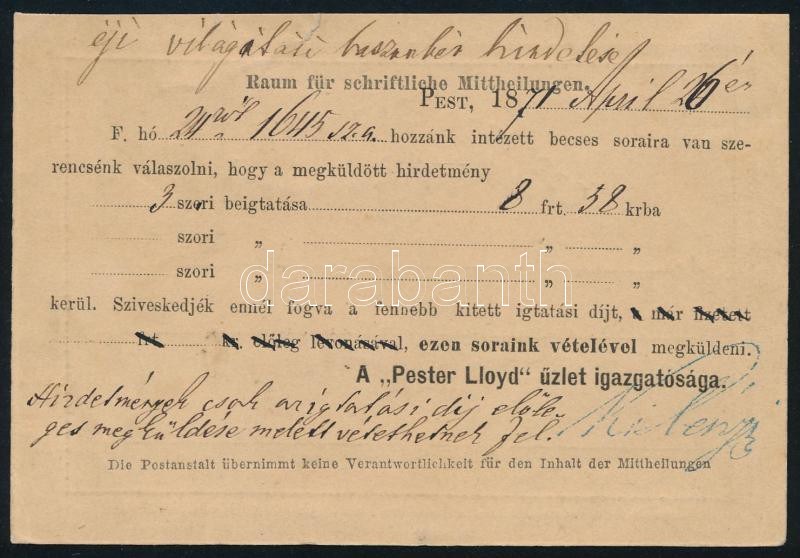 éji világítási haszonbér hirdetése
Raum für schriftliche Mittheilungen.
PEST, 1871 April 26 én
F. hó 24ről 1645 sz. a. hozzánk intézett becses soraira van sze-
rencsénk válaszolni, hogy a megküldött hirdetmény
3 szori beigtatása 8 frt. 38 krba
szori „ „ „
szori „ „ „
kerül. Sziveskedjék ennél fogva a fennebb kitett igtatási díjt, a már fizetett
frt kr. előleg levonásával, ezen soraink vételével megküldeni.
A „Pester Lloyd" üzlet igazgatósága.
Hirdetmények csak az igtatási dij előle-
ges megküldése mellett vétethetnek fel.
Die Postanstalt übernimmt keine Verantwortlichkeit für den Inhalt der Mittheilungen
darabanth